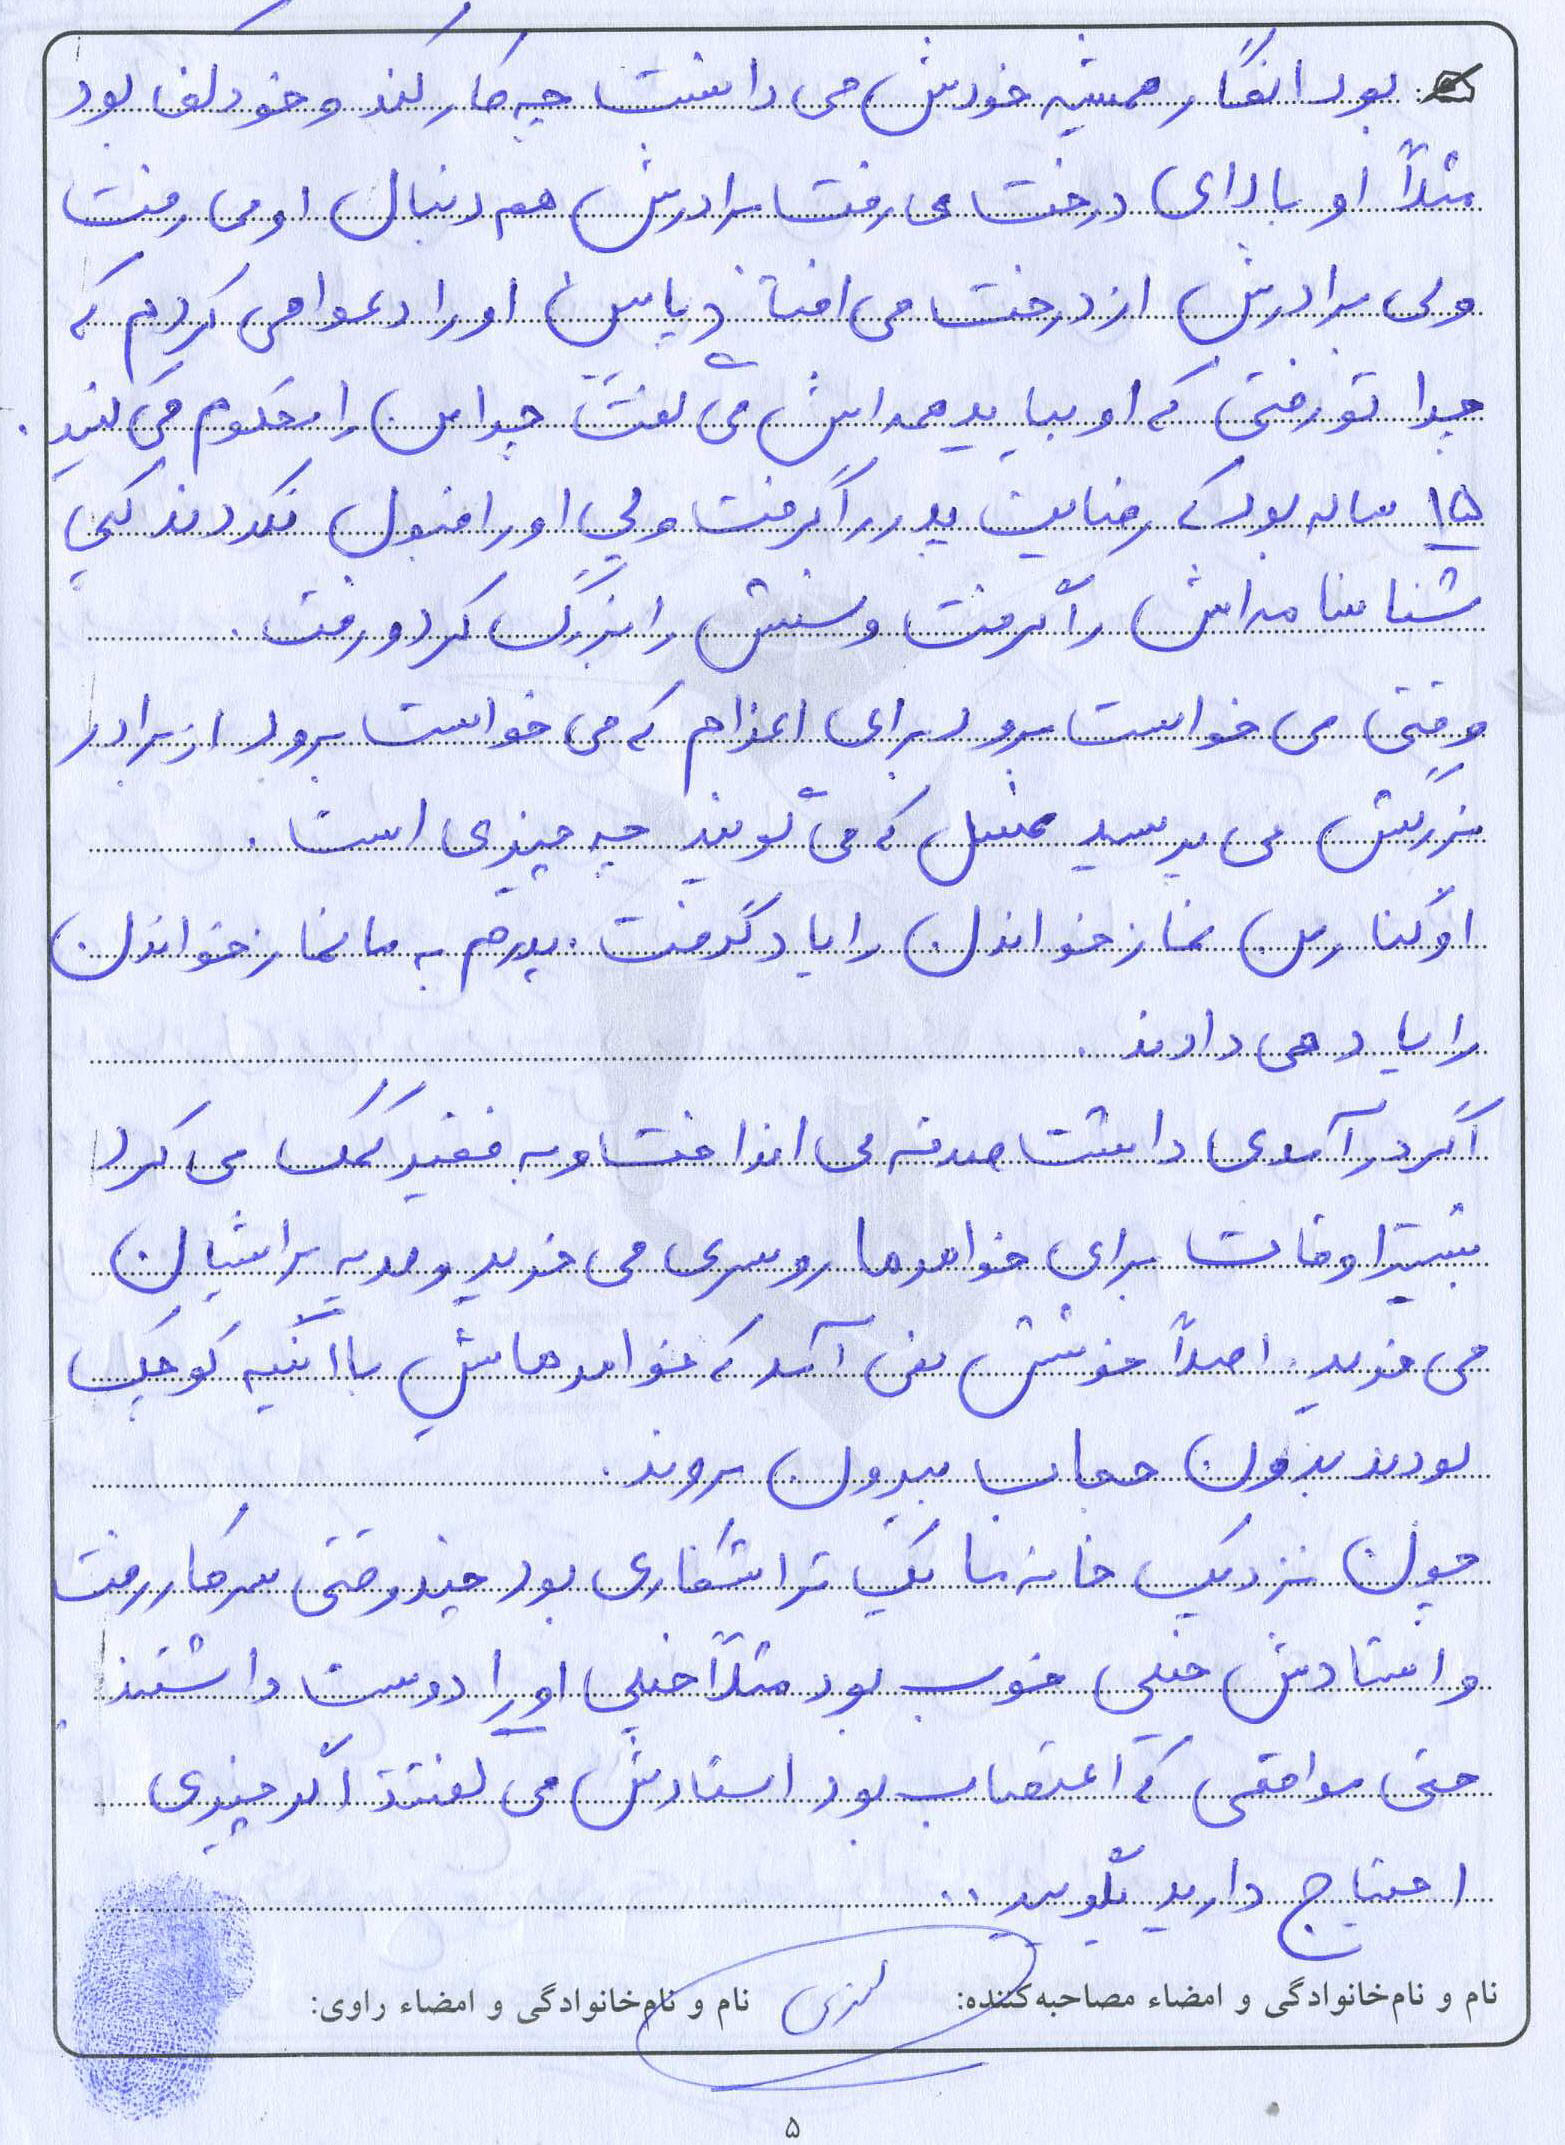 بود انگار همیشه خودش می دانست چه کار کند و خودکفا بود
مثلاً او بالای درخت می رفت برادرش هم دنبال او می رفت
ولی برادرش از درخت می افتاد و پاس او را دعوا می کردم که
چرا تو رفتی که او بیاید همه اش می گفت چرا من را محکوم می کنید.
۱۵ ساله بود که رضایت پدر را گرفت ولی او را قبول نکردند کپی
شناسنامه اش را گرفت و سنش را بزرگ کرد و رفت.
وقتی می خواست برود برای اعزام که می خواست برود از برادر
بزرگش می پرسید غسل که می گویند چه چیزی است.
او کنار من نماز خواندن را یاد گرفت. پدرم به ما نماز خواندن
را یاد می دادند.
اگر درآمدی داشت صدقه می انداخت و به فقیر کمک می کرد
بیشتر اوقات برای خواهرها روسری می خرید و هدیه برایشان
می خرید. اصلاً خوشش نمی آمد که خواهرهایش با اینکه کوچک
بودند بدون حجاب بیرون بروند.
چون نزدیک خانه ما یک تراشکاری بود چند وقتی سر کار رفت
و استادش خیلی خوب بود مثلاً خیلی او را دوست داشتند
حتی مواقعی که اعتصاب بود استادش می گفتند اگر چیزی
احتیاج دارید بگویید..
نام و نام‌خانوادگی و امضاء مصاحبه‌کننده: نام و نام‌خانوادگی و امضاء راوی:
۵